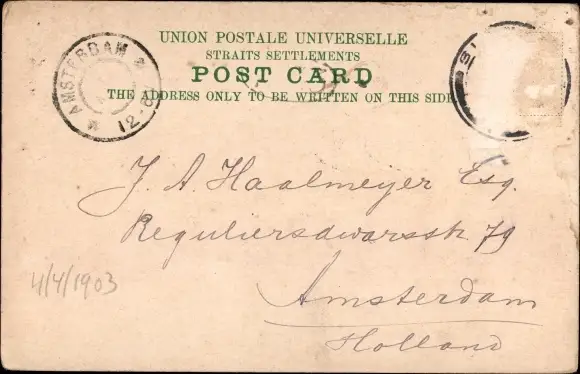 UNION POSTALE UNIVERSELLE
STRAITS SETTLEMENTS
POST CARD
THE ADDRESS ONLY TO BE WRITTEN ON THIS SIDE
AMSTERDAM
12-8
J. A. Haalmeyer Esq.
Reguliersdwarsstr. 79
4/4/1903
Amsterdam
Holland